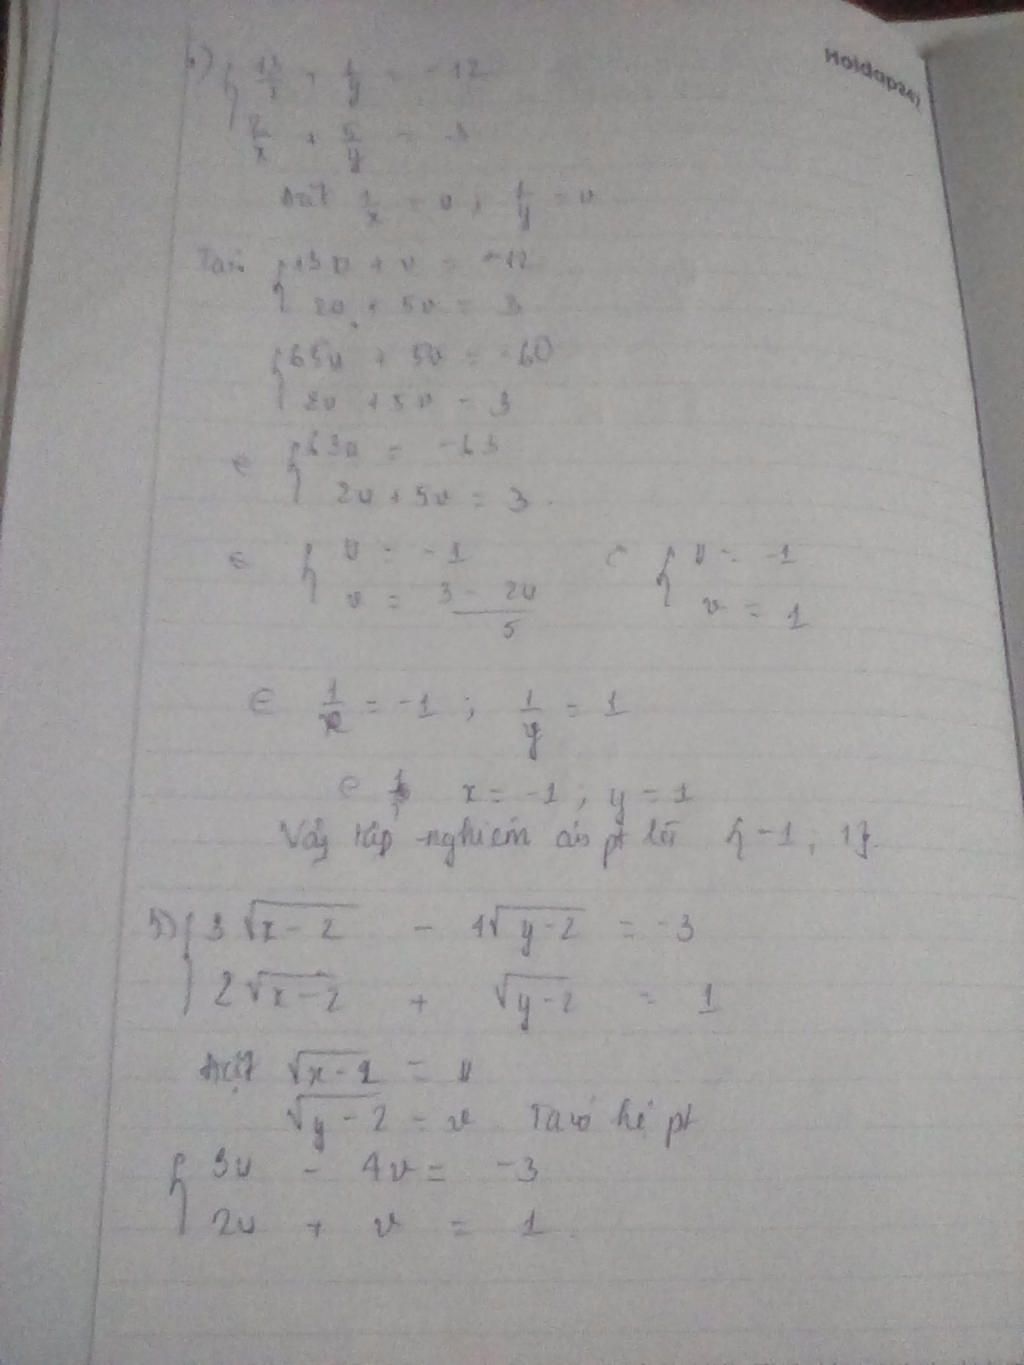 Hoidap247
{ 13/x + 1/y = -12
2/x + 5/y = 3
Đặt 1/x = u ; 1/y = v
Ta có { 13u + v = -12
2u + 5v = 3
{ 65u + 5v = -60
2u + 5v = 3
{ 63u = -63
2u + 5v = 3
{ u = -1
v = (3 - 2u)/5
{ u = -1
v = 1
1/x = -1 ; 1/y = 1
x = -1 ; y = 1
Vậy tập nghiệm pt là { -1 ; 1 }
5) { 3√(x-2) - 4√(y-2) = -3
2√(x-2) + √(y-2) = 1
Đặt √(x-2) = u
√(y-2) = v Ta có hệ pt
{ 3u - 4v = -3
2u + v = 1